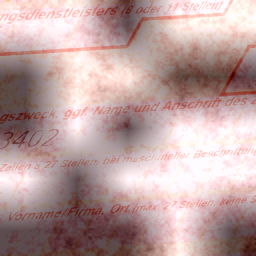 ngsdienstleisters (8 oder 11 Stellen)
gszweck, ggf. Name und Anschrift des
3402
Zeilen à 27 Stellen, bei maschineller Beschriftung
Vorname/Firma, Ort (max. 27 Stellen, keine S